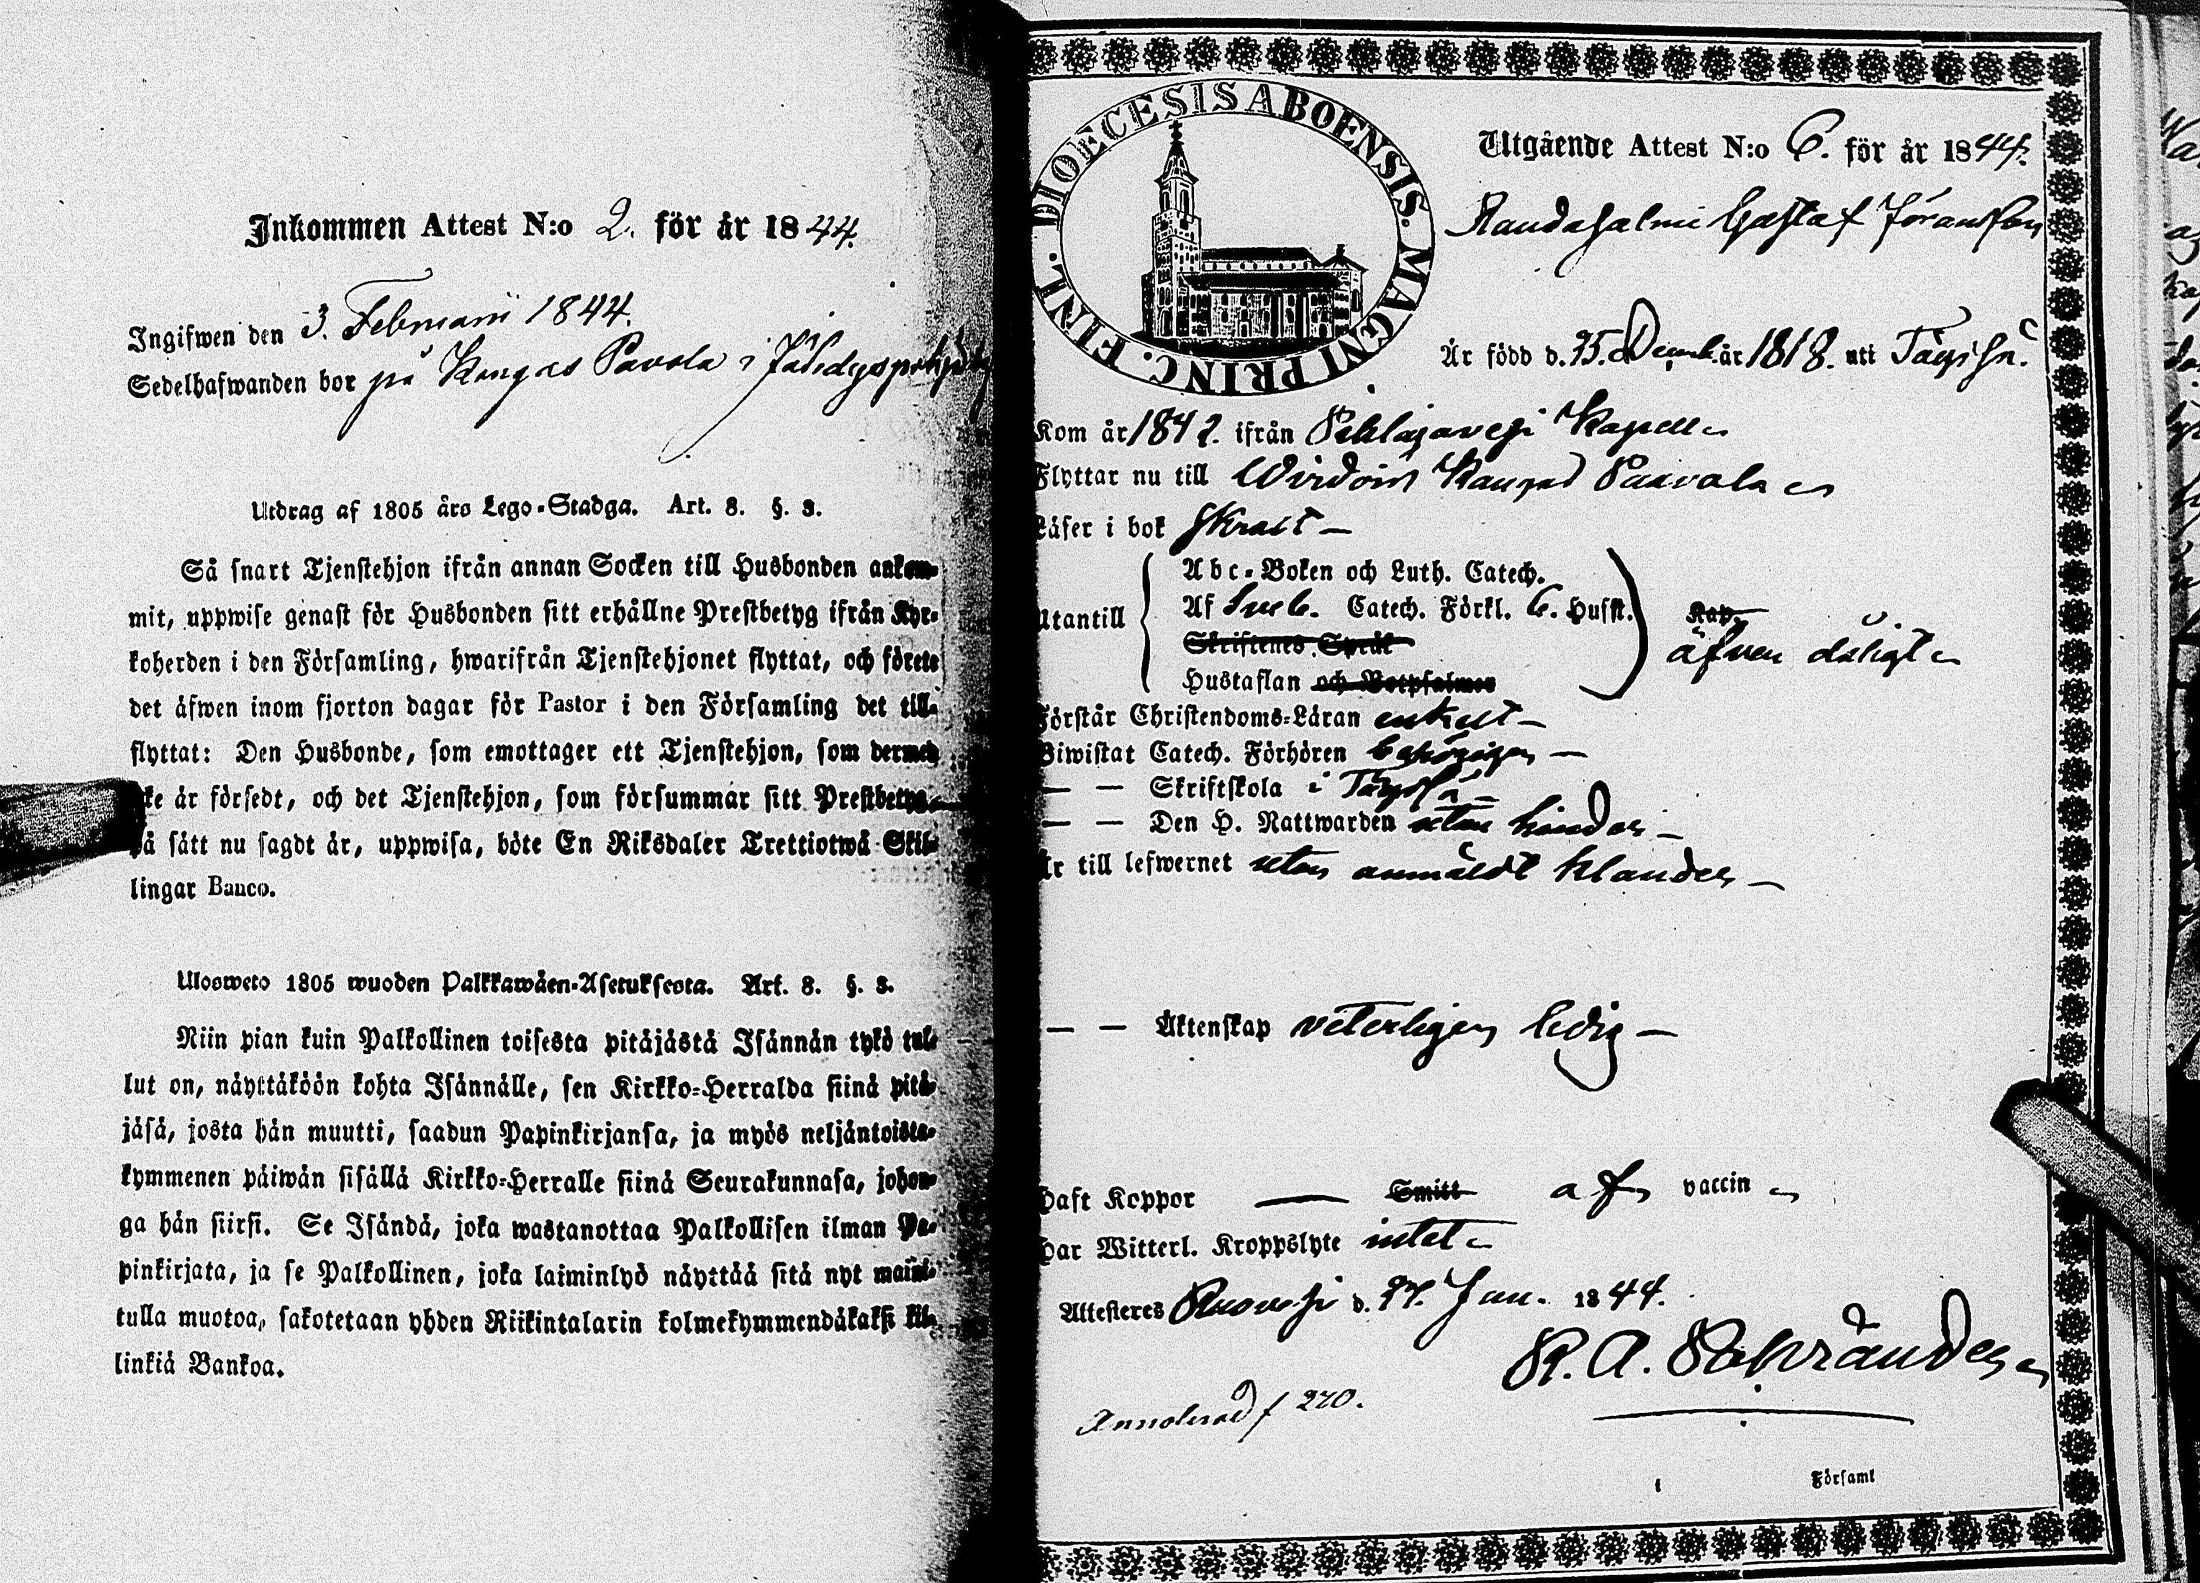 Inkommen Attest N:o 2. för år 1844.
Ingifwen den 3. Februarii 1844.
Sedelhafwanden bor på Kangas Pavola i Jäkedyspohja
Utdrag af 1805 års Lego-Stadga. Art. 8. §. 3.
Så snart Tjenstehjon ifrån annan Socken till Husbonden ankom-
mit, uppwise genast för Husbonden sitt erhållne Prestbetyg ifrån Kyr-
koherden i den Församling, hwarifrån Tjenstehjonet flyttat, och förete
det äfwen inom fjorton dagar för Pastor i den Församling det till-
flyttat: Den Husbonde, som emottager ett Tjenstehjon, som dermed
ke är försedt, och det Tjenstehjon, som försummar sitt Prestbetyg,
på sätt nu sagdt är, uppwisa, böte En Riksdaler Trettiotwå Skil-
lingar Banco.
Ulosweto 1805 wuoden Palkkawäen-Asetuksesta. Art. 8. §. 3.
Niin pian kuin Palkollinen toisesta pitäjästä Isännän tykö tul-
lut on, näyttäköön kohta Isännälle, sen Kirkko-Herralda siinä pitä-
jäsä, josta hän muutti, saadun Papinkirjansa, ja myös neljäntoista-
kymmenen päiwän sisällä Kirkko-Herralle siinä Seurakunnasa, johon-
ga hän siirsi. Se Isändä, joka wastanottaa Palkollisen ilman Pa-
pinkirjata, ja se Palkollinen, joka laiminlyö näyttää sitä nyt maini-
tulla muotoa, sakotetaan yhden Riikintalarin kolmekymmendäkaksi kil-
linkiä Bankoa.
FINL. DIOECESIS ABOENSIS. MAGNI PRINC.
Utgående Attest N:o 6. för år 1844.
Raudasalmi Gustaf Jöransson
År född d. 25. Decemb. år 1818. uti Töysä.
Kom år 1842. ifrån Pihlajavesi Kapell
Flyttar nu till Wirdois Kangas Paavola
Läser i bok Skralt
Utantill
Abc-Boken och Luth. Catech.
Af Sveb. Catech. Förkl. 6. Hufst.
Skriftenes Språk
Hustaflan och Botpsalmer
Kap.
äfven dåligt
Förstår Christendoms-Läran enkelt
Biwistat Catech. Förhören behörigen
— — Skriftskola i Töysä
— — Den H. Nattwarden utan hinder
Är till lefwernet utan anmäldt klander
— — Äktenskap veterligen ledig
Haft Koppor — Smitt af vaccin
Har Witterl. Kroppslyte intet
Attesteres Ruovesi d. 27. Jan. 1844.
R. A.
Annoterad f 270.
i Församl